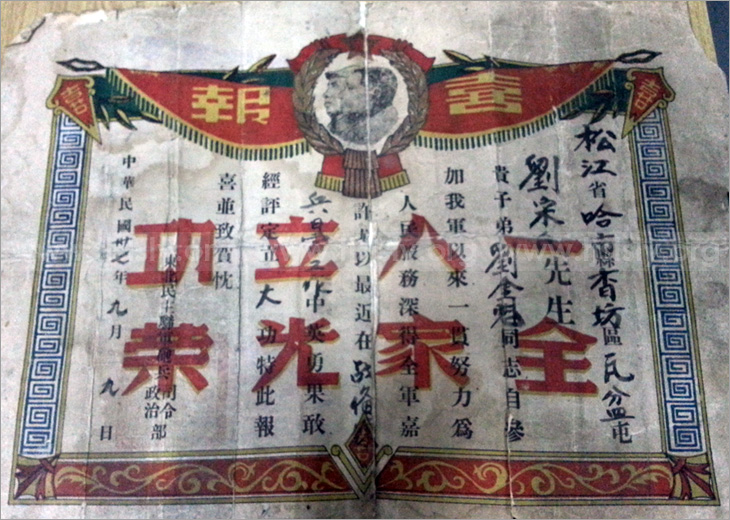 喜報
喜
喜
一人立功
全家光榮
松江省哈市縣香坊區瓦盆屯
劉 先生
貴子弟劉 同志自參
加我軍以來一貫努力爲
人民服務深得全軍嘉
許尤以最近在
英勇果敢
經評定立大功特此報
喜並致賀忱
東北民主聯軍砲兵司令
政治部
中華民國卅七年九月九日